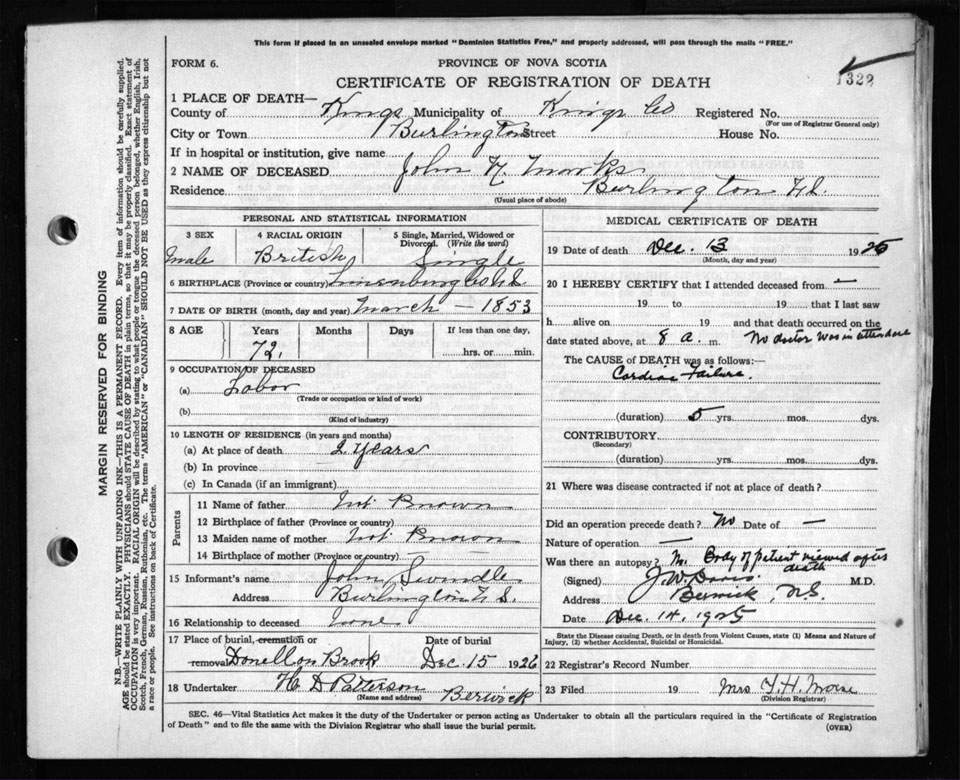 This form if placed in an unsealed envelope marked "Dominion Statistics Free," and properly addressed, will pass through the mails "FREE."
FORM 6.
PROVINCE OF NOVA SCOTIA
CERTIFICATE OF REGISTRATION OF DEATH
1322
1 PLACE OF DEATH—
County of Kings Municipality of Kings Co Registered No.
(For use of Registrar General only)
City or Town Burlington Street House No.
If in hospital or institution, give name
2 NAME OF DECEASED John H. Marks
Residence Burlington N.S.
(Usual place of abode)
PERSONAL AND STATISTICAL INFORMATION
3 SEX Male
4 RACIAL ORIGIN British
5 Single, Married, Widowed or Divorced. (Write the word) Single
6 BIRTHPLACE (Province or country) Lunenburg Co N.S.
7 DATE OF BIRTH (month, day and year) March — 1853
8 AGE Years Months Days If less than one day,
72, hrs. or min.
9 OCCUPATION OF DECEASED
(a) Labor
(Trade or occupation or kind of work)
(b)
(Kind of industry)
10 LENGTH OF RESIDENCE (in years and months)
(a) At place of death 2 years
(b) In province
(c) In Canada (if an immigrant)
Parents
11 Name of father Not Known
12 Birthplace of father (Province or country)
13 Maiden name of mother Not Known
14 Birthplace of mother (Province or country) —
15 Informant's name John Swindle
Address Burlington N.S.
16 Relationship to deceased None
17 Place of burial, cremation or Date of burial
removal Donellon Brook Dec. 15 1926
18 Undertaker H D Patterson Berwick
(Name and address)
MEDICAL CERTIFICATE OF DEATH
19 Date of death Dec. 13 1925
(Month, day and year)
20 I HEREBY CERTIFY that I attended deceased from —
19 to 19 that I last saw
h alive on 19 and that death occurred on the
date stated above, at 8 a. m. No doctor was in attendance
The CAUSE of DEATH was as follows:
Cardiac Failure.
(duration) 5 yrs. mos. dys.
CONTRIBUTORY
(Secondary)
(duration) yrs. mos. dys.
21 Where was disease contracted if not at place of death?
Did an operation precede death? No Date of —
Nature of operation —
Was there an autopsy? No. Body of patient viewed after death
(Signed) J. W. Davis. M.D.
Address Berwick, N.S.
Date Dec. 14, 1925
State the Disease causing Death, or in death from Violent Causes, state (1) Means and Nature of
Injury, (2) whether Accidental, Suicidal or Homicidal.
22 Registrar's Record Number
23 Filed 19 Mrs Y. H. Morse
(Division Registrar)
SEC. 46—Vital Statistics Act makes it the duty of the Undertaker or person acting as Undertaker to obtain all the particulars required in the "Certificate of Registration
of Death" and to file the same with the Division Registrar who shall issue the burial permit.
(OVER)
MARGIN RESERVED FOR BINDING
N.B. WRITE PLAINLY, WITH UNFADING INK—THIS IS A PERMANENT RECORD. Every item of information should be carefully supplied.
AGE should be stated EXACTLY. PHYSICIANS should STATE CAUSE OF DEATH in plain terms, so that it may be properly classified. Exact statement of
OCCUPATION is very important. RACIAL ORIGIN will be described by stating to what people or tongue the deceased person belonged, whether English, Irish,
Scotch, French, German, Russian, Ruthenian, etc. The terms "AMERICAN" or "CANADIAN" SHOULD NOT BE USED as they express citizenship but not
a race or people. See instructions on back of Certificate.